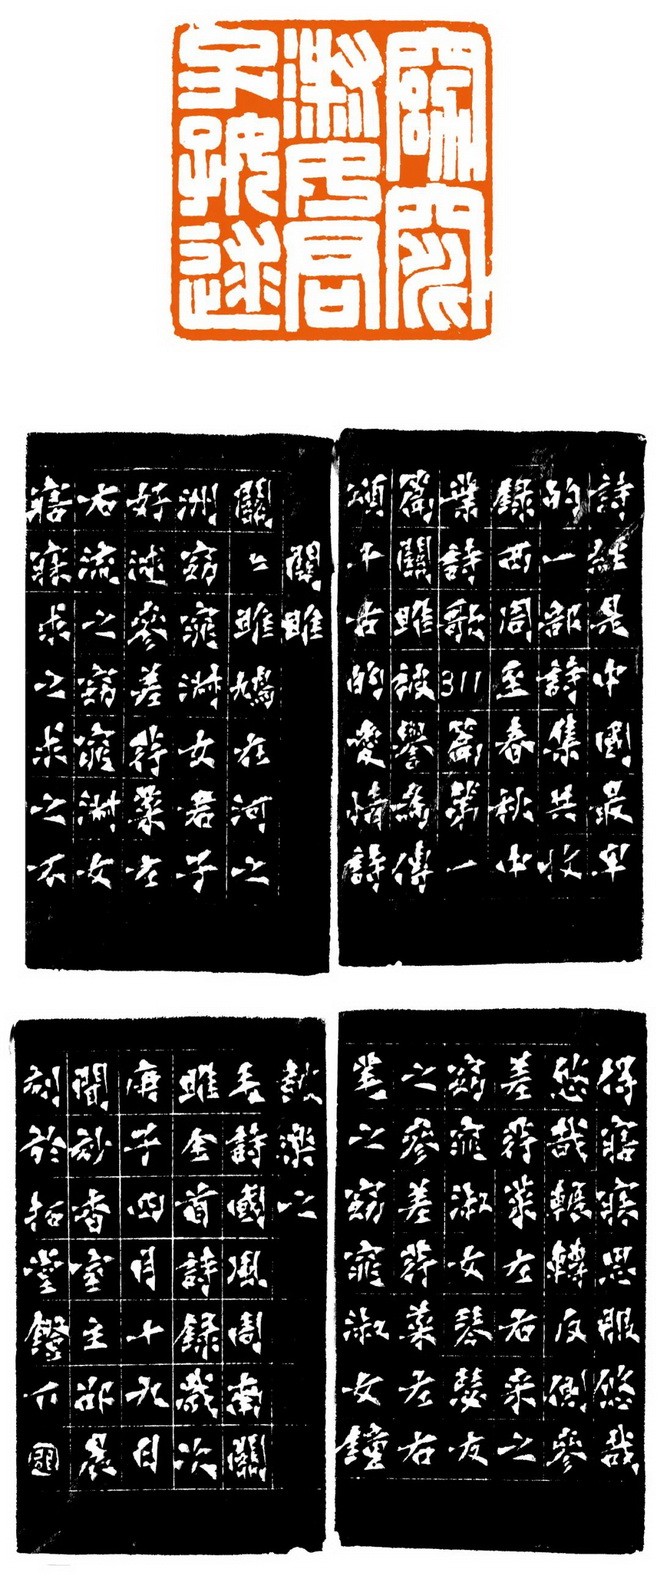 窈窕
淑女君
子好逑
詩經是中國最早
的一部詩集共收
錄西周至春秋中
葉詩歌311篇第一
篇關雎被譽為傳
頌千古的愛情詩
關雎
關々雎鳩在河之
洲窈窕淑女君子
好逑參差荇菜左
右流之窈窕淑女
寤寐求之求之不
得寤寐思服悠哉
悠哉輾轉反側參
差荇菜左右采之
窈窕淑女琴瑟友
之參差荇菜左右
芼之窈窕淑女鐘
鼓樂之
毛詩國風周南關
雎全首詩錄歲次
庚子四月十九日
聞妙香室主邵晨
刻於拓堂燈下